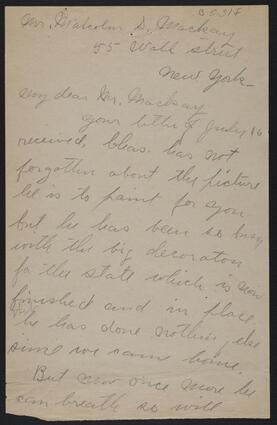 C.5.317
Mr. Malcolm S. Mackay
55 Wall street
New York-
My dear Mr. Mackay
Your letter of July 16
received, Chas. has not
forgotten about the picture
he is to paint for you
but he has been so busy
with the big decoration
for the state which is now
finished and in place
he has done nothing else
since we came home.
But now once more he
can breath so will